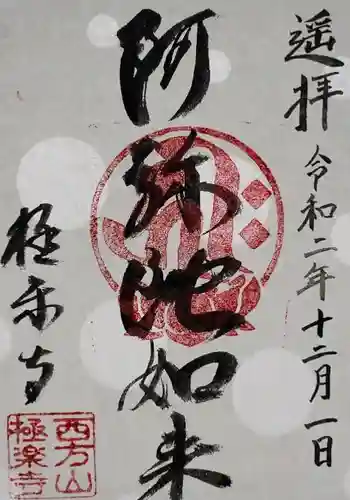 遥拝
令和二年十二月一日
阿弥陀如来
極楽寺
西方山
極楽寺